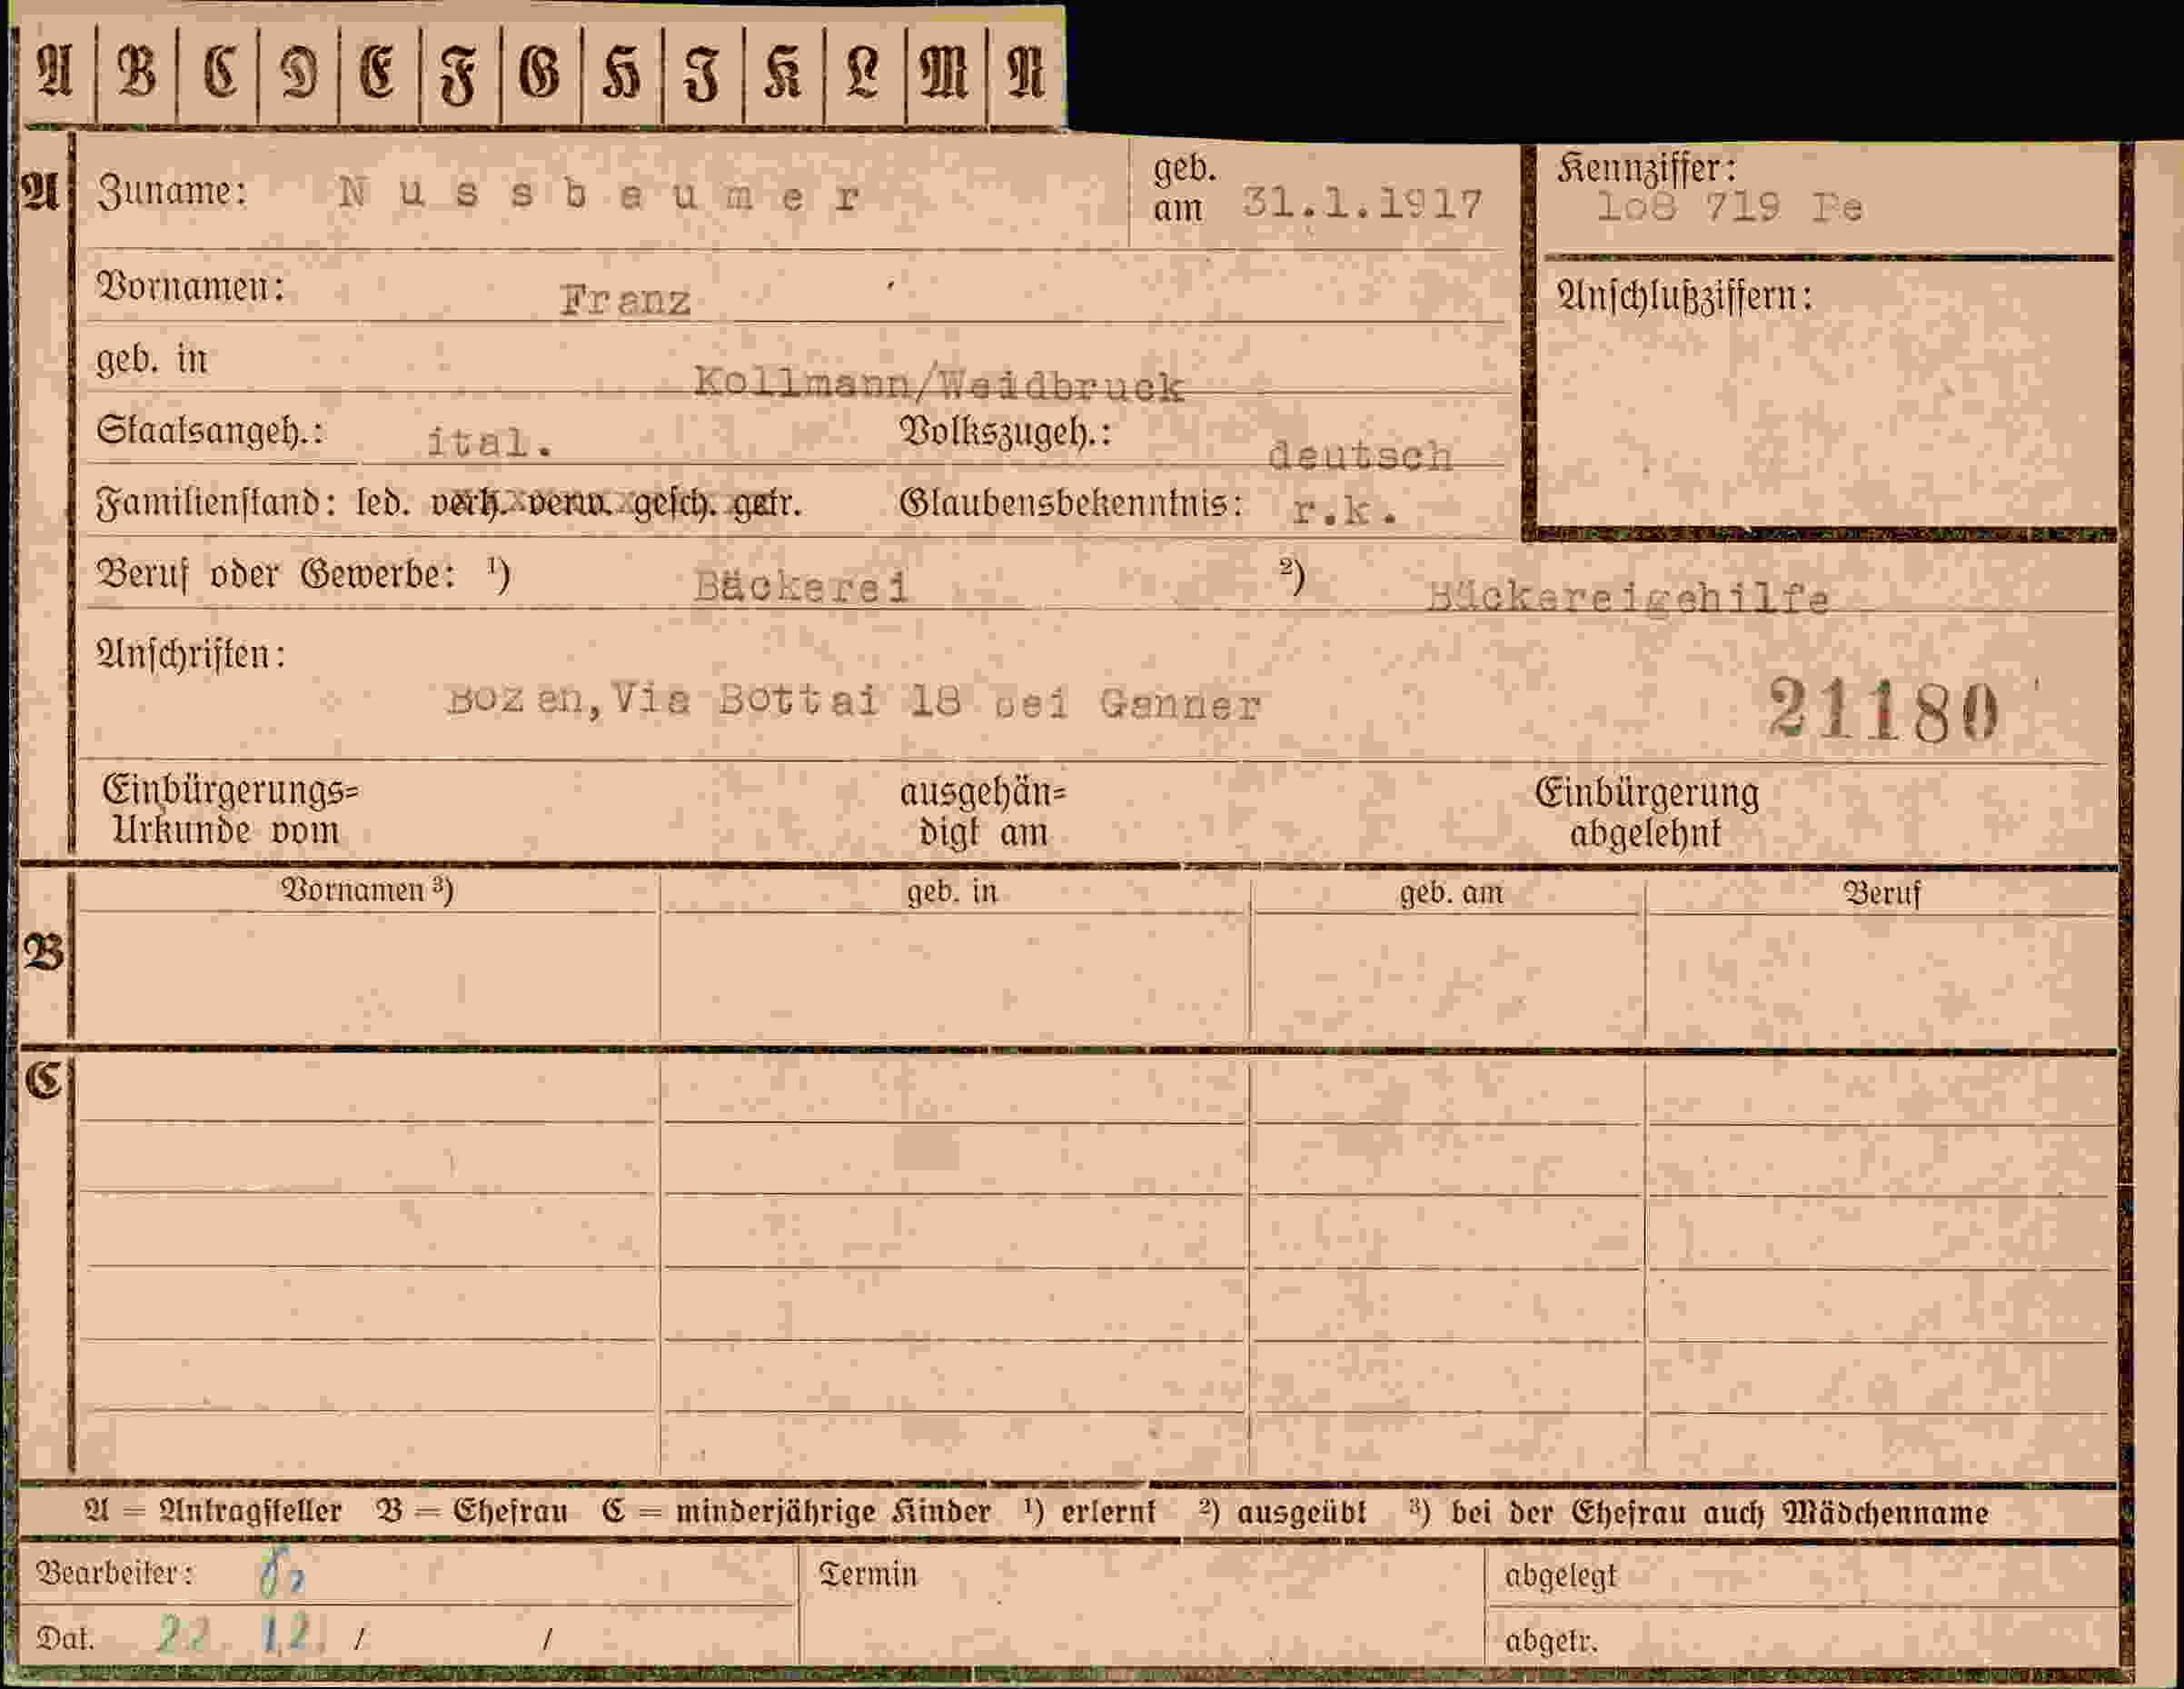 A B C D E F G H I K L M N
A Zuname: Nussbaumer geb. am 31.1.1917
Kennziffer: 1o8 719 Pe
Vornamen: Franz
Anschlußziffern:
geb. in Kollmann/Waidbruck
Staatsangeh.: ital. Volkszugeh.: deutsch
Familienstand: led. verh. verw. gesch. getr. Glaubensbekenntnis: r.k.
Beruf oder Gewerbe: ¹) Bäckerei ²) Bäckereigehilfe
Anschriften:
Bozen,Via Bottai 18 bei Ganner 21180
Einbürgerungs= ausgehän= Einbürgerung
Urkunde vom digt am abgelehnt
Vornamen ³) geb. in geb. am Beruf
B
C
A = Antragsteller B = Ehefrau C = minderjährige Kinder ¹) erlernt ²) ausgeübt ³) bei der Ehefrau auch Mädchenname
Bearbeiter: Termin abgelegt
Dat. 22. 12. / / abgetr.